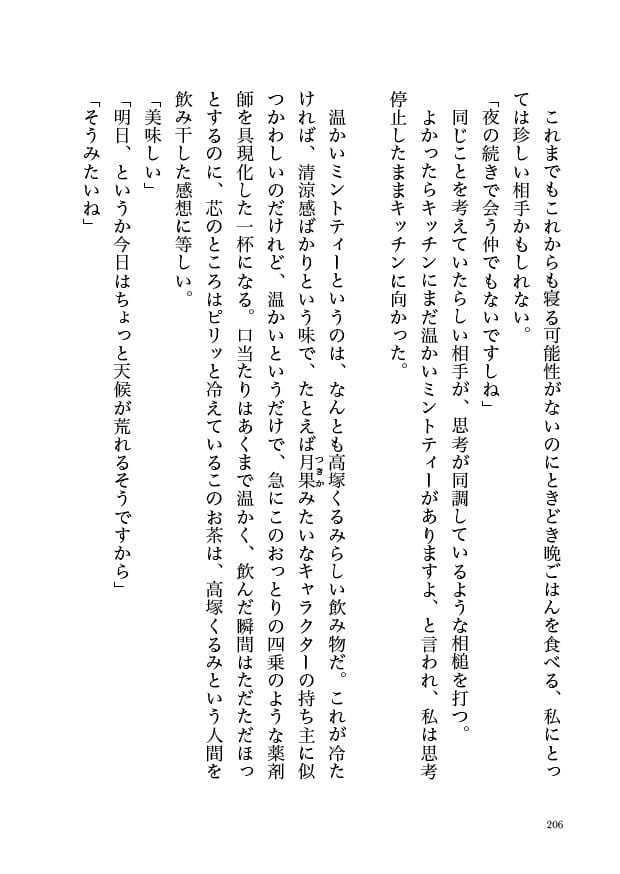 これまでもこれからも寝る可能性がないのにときどき晩ごはんを食べる、私にとっ
ては珍しい相手かもしれない。
「夜の続きで会う仲でもないですしね」
同じことを考えていたらしい相手が、思考が同調しているような相槌を打つ。
よかったらキッチンにまだ温かいミントティーがありますよ、と言われ、私は思考
停止したままキッチンに向かった。
温かいミントティーというのは、なんとも高塚くるみらしい飲み物だ。これが冷た
ければ、清涼感ばかりという味で、たとえば月果みたいなキャラクターの持ち主に似
つきか
つかわしいのだけれど、温かいというだけで、急にこのおっとりの四乗のような薬剤
師を具現化した一杯になる。口当たりはあくまで温かく、飲んだ瞬間はただただほっ
とするのに、芯のところはピリッと冷えているこのお茶は、高塚くるみという人間を
飲み干した感想に等しい。
「美味しい」
「明日、というか今日はちょっと天候が荒れるそうですから」
「そうみたいね」
206